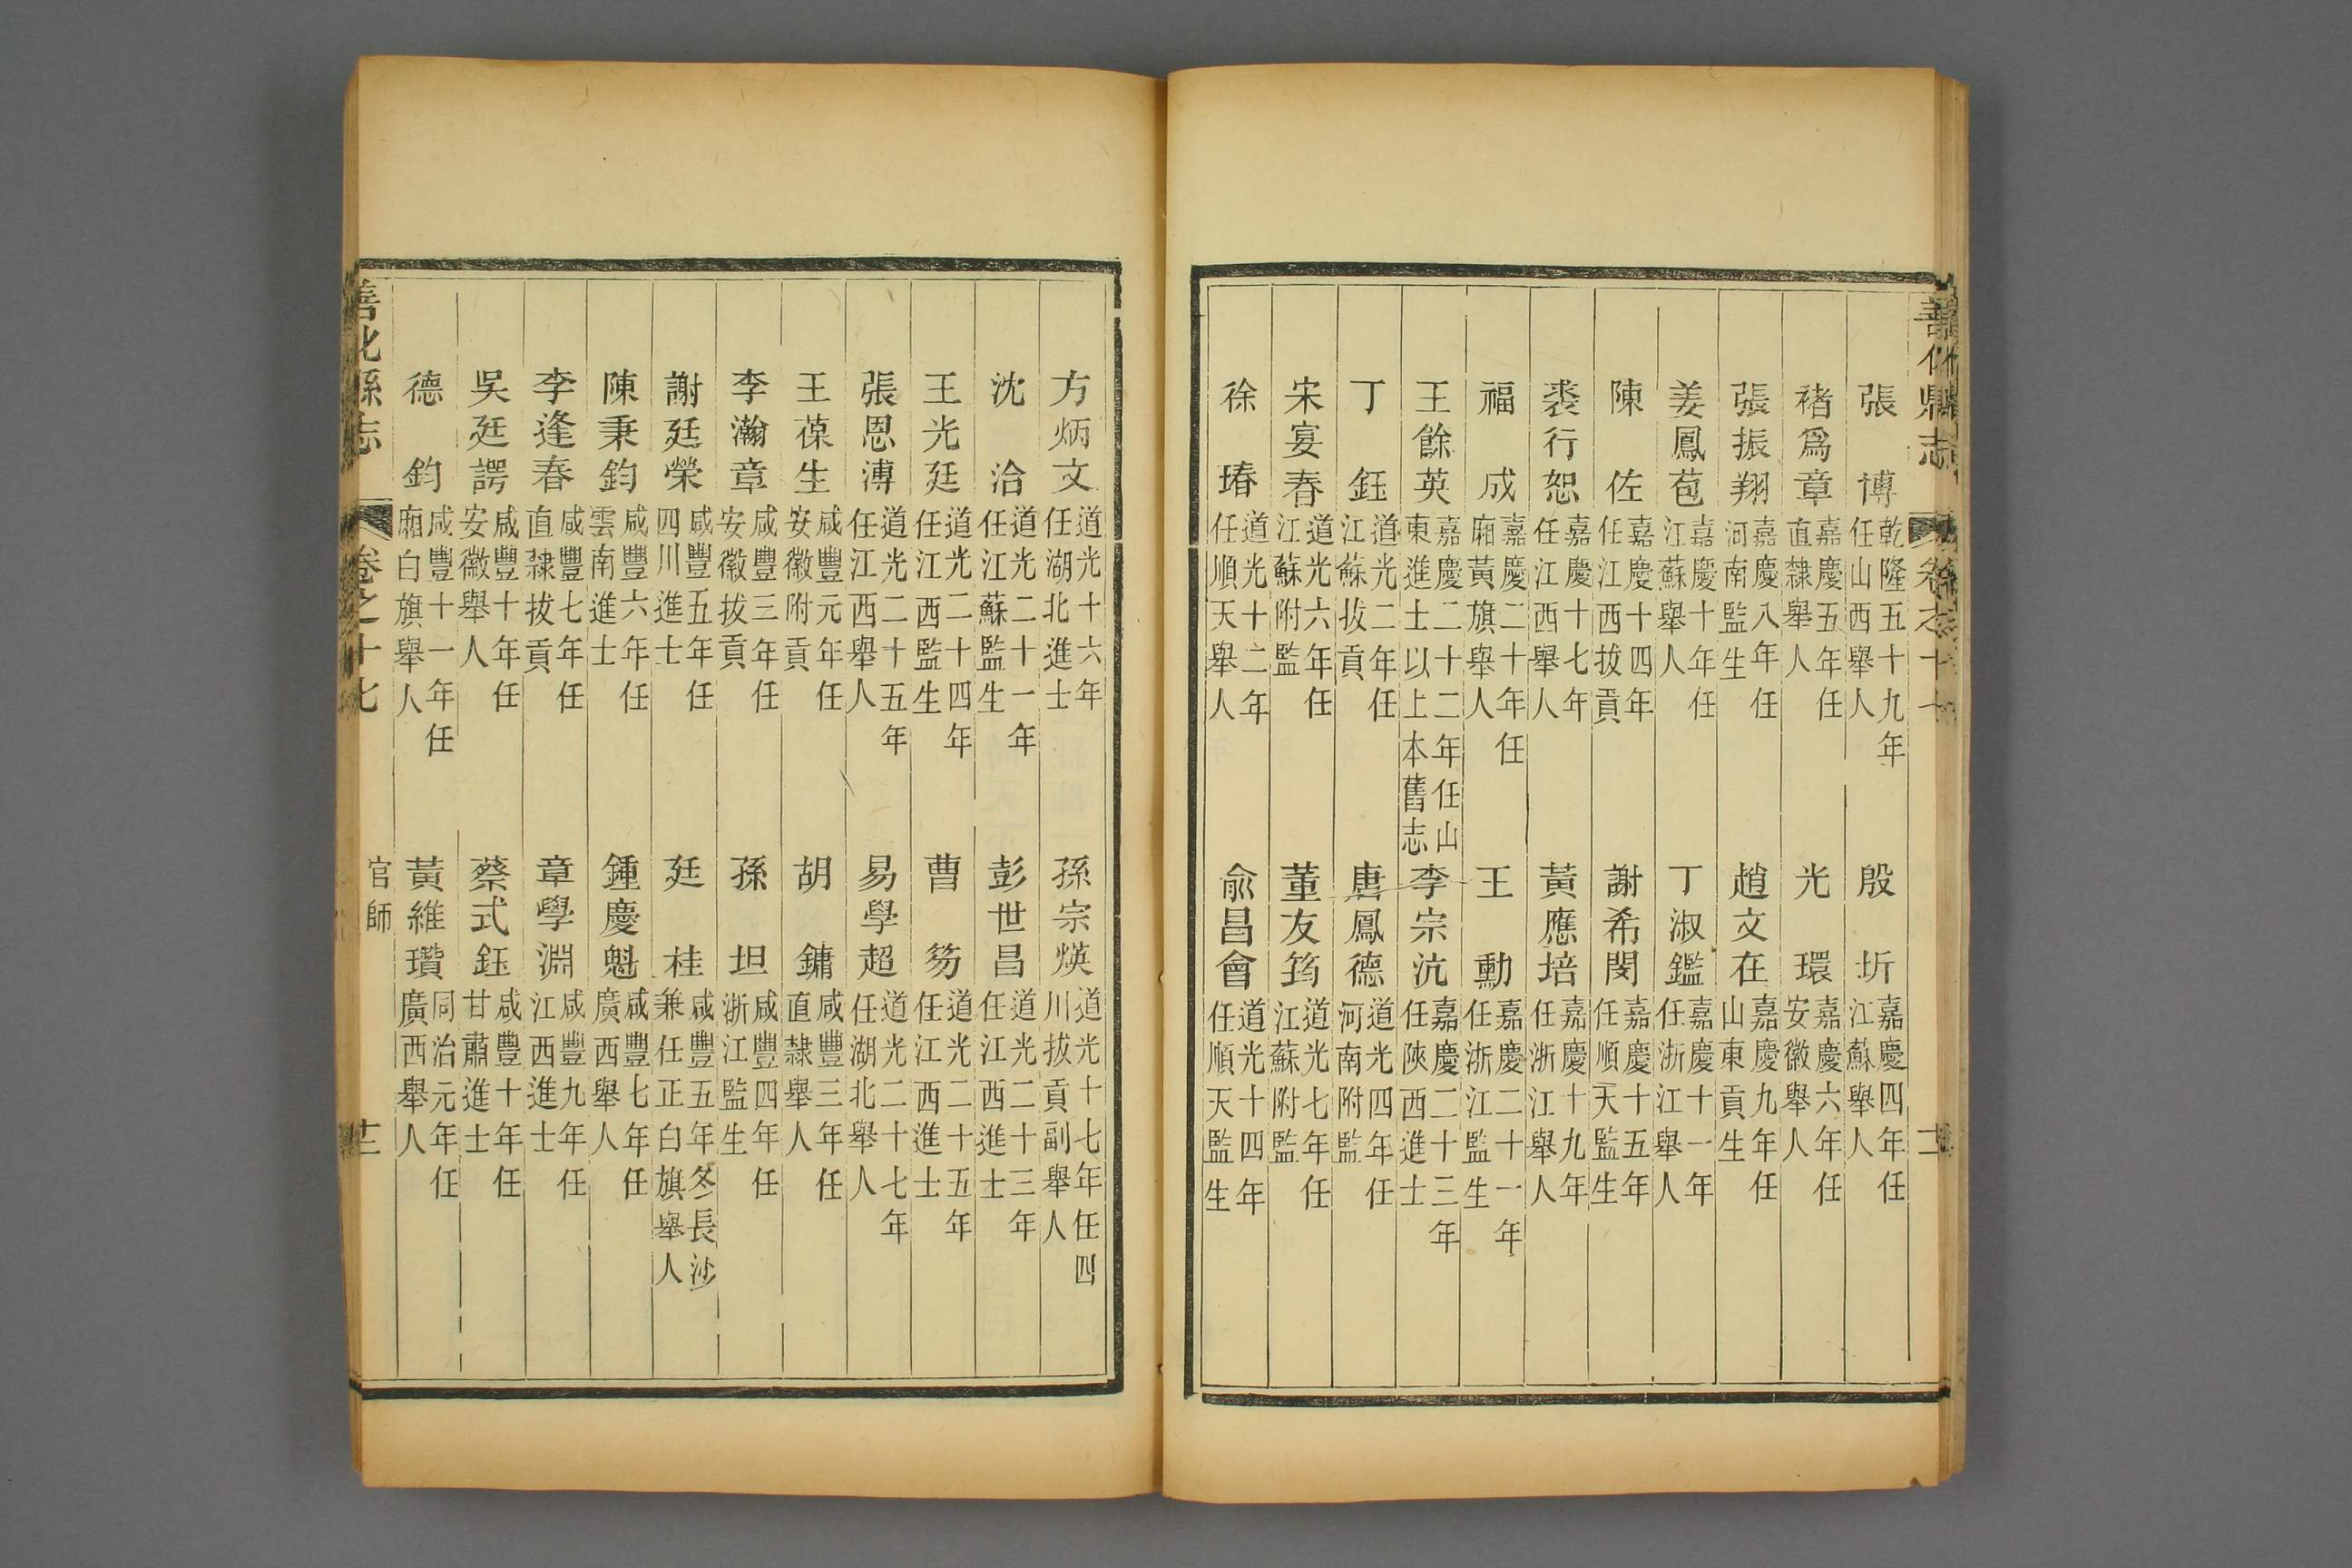 善化縣志 卷之十七
張博 乾隆五十九年任山西舉人 殷圻 嘉慶四年任江蘇舉人
褚爲章 嘉慶五年任直隸舉人 光環 嘉慶六年任安徽舉人
張振翔 嘉慶八年任河南監生 趙文在 嘉慶九年任山東貢生
姜鳳苞 嘉慶十年任江蘇舉人 丁淑鑑 嘉慶十一年任浙江舉人
陳佐 嘉慶十四年任江西拔貢 謝希閔 嘉慶十五年任順天監生
裘行恕 嘉慶十七年任江西舉人 黃應培 嘉慶十九年任浙江舉人
福成 嘉慶二十年任廂黃旗舉人 王勳 嘉慶二十一年任浙江監生
王餘英 嘉慶二十二年任山東進士以上本舊志 李宗沆 嘉慶二十三年任陝西進士
丁鈺 道光二年任江蘇拔貢 唐鳳德 道光四年任河南附監
宋宴春 道光六年任江蘇附監 董友筠 道光七年任江蘇附監
徐瑃 道光十二年任順天舉人 俞昌會 道光十四年任順天監生
方炳文 道光十六年任湖北進士 孫宗煐 道光十七年任四川拔貢副舉人
沈洽 道光二十一年任江蘇監生 彭世昌 道光二十三年任江西進士
王光廷 道光二十四年任江西監生 曹芴 道光二十五年任江西進士
張恩溥 道光二十五年任江西舉人 易學超 道光二十七年任湖北舉人
王葆生 咸豐元年任安徽附貢 胡鏞 咸豐三年任直隸舉人
李瀚章 咸豐三年任安徽拔貢 孫坦 咸豐四年任浙江監生
謝廷榮 咸豐五年任四川進士 廷桂 咸豐五年冬長沙兼任正白旗舉人
陳秉鈞 咸豐六年任雲南進士 鍾慶魁 咸豐七年任廣西舉人
李逢春 咸豐七年任直隸拔貢 章學淵 咸豐九年任江西進士
吳廷諤 咸豐十年任安徽舉人 蔡式鈺 咸豐十年任甘肅進士
德鈞 咸豐十一年任廂白旗舉人 黃維瓚 同治元年任廣西舉人
善化縣志 卷之十七 官師